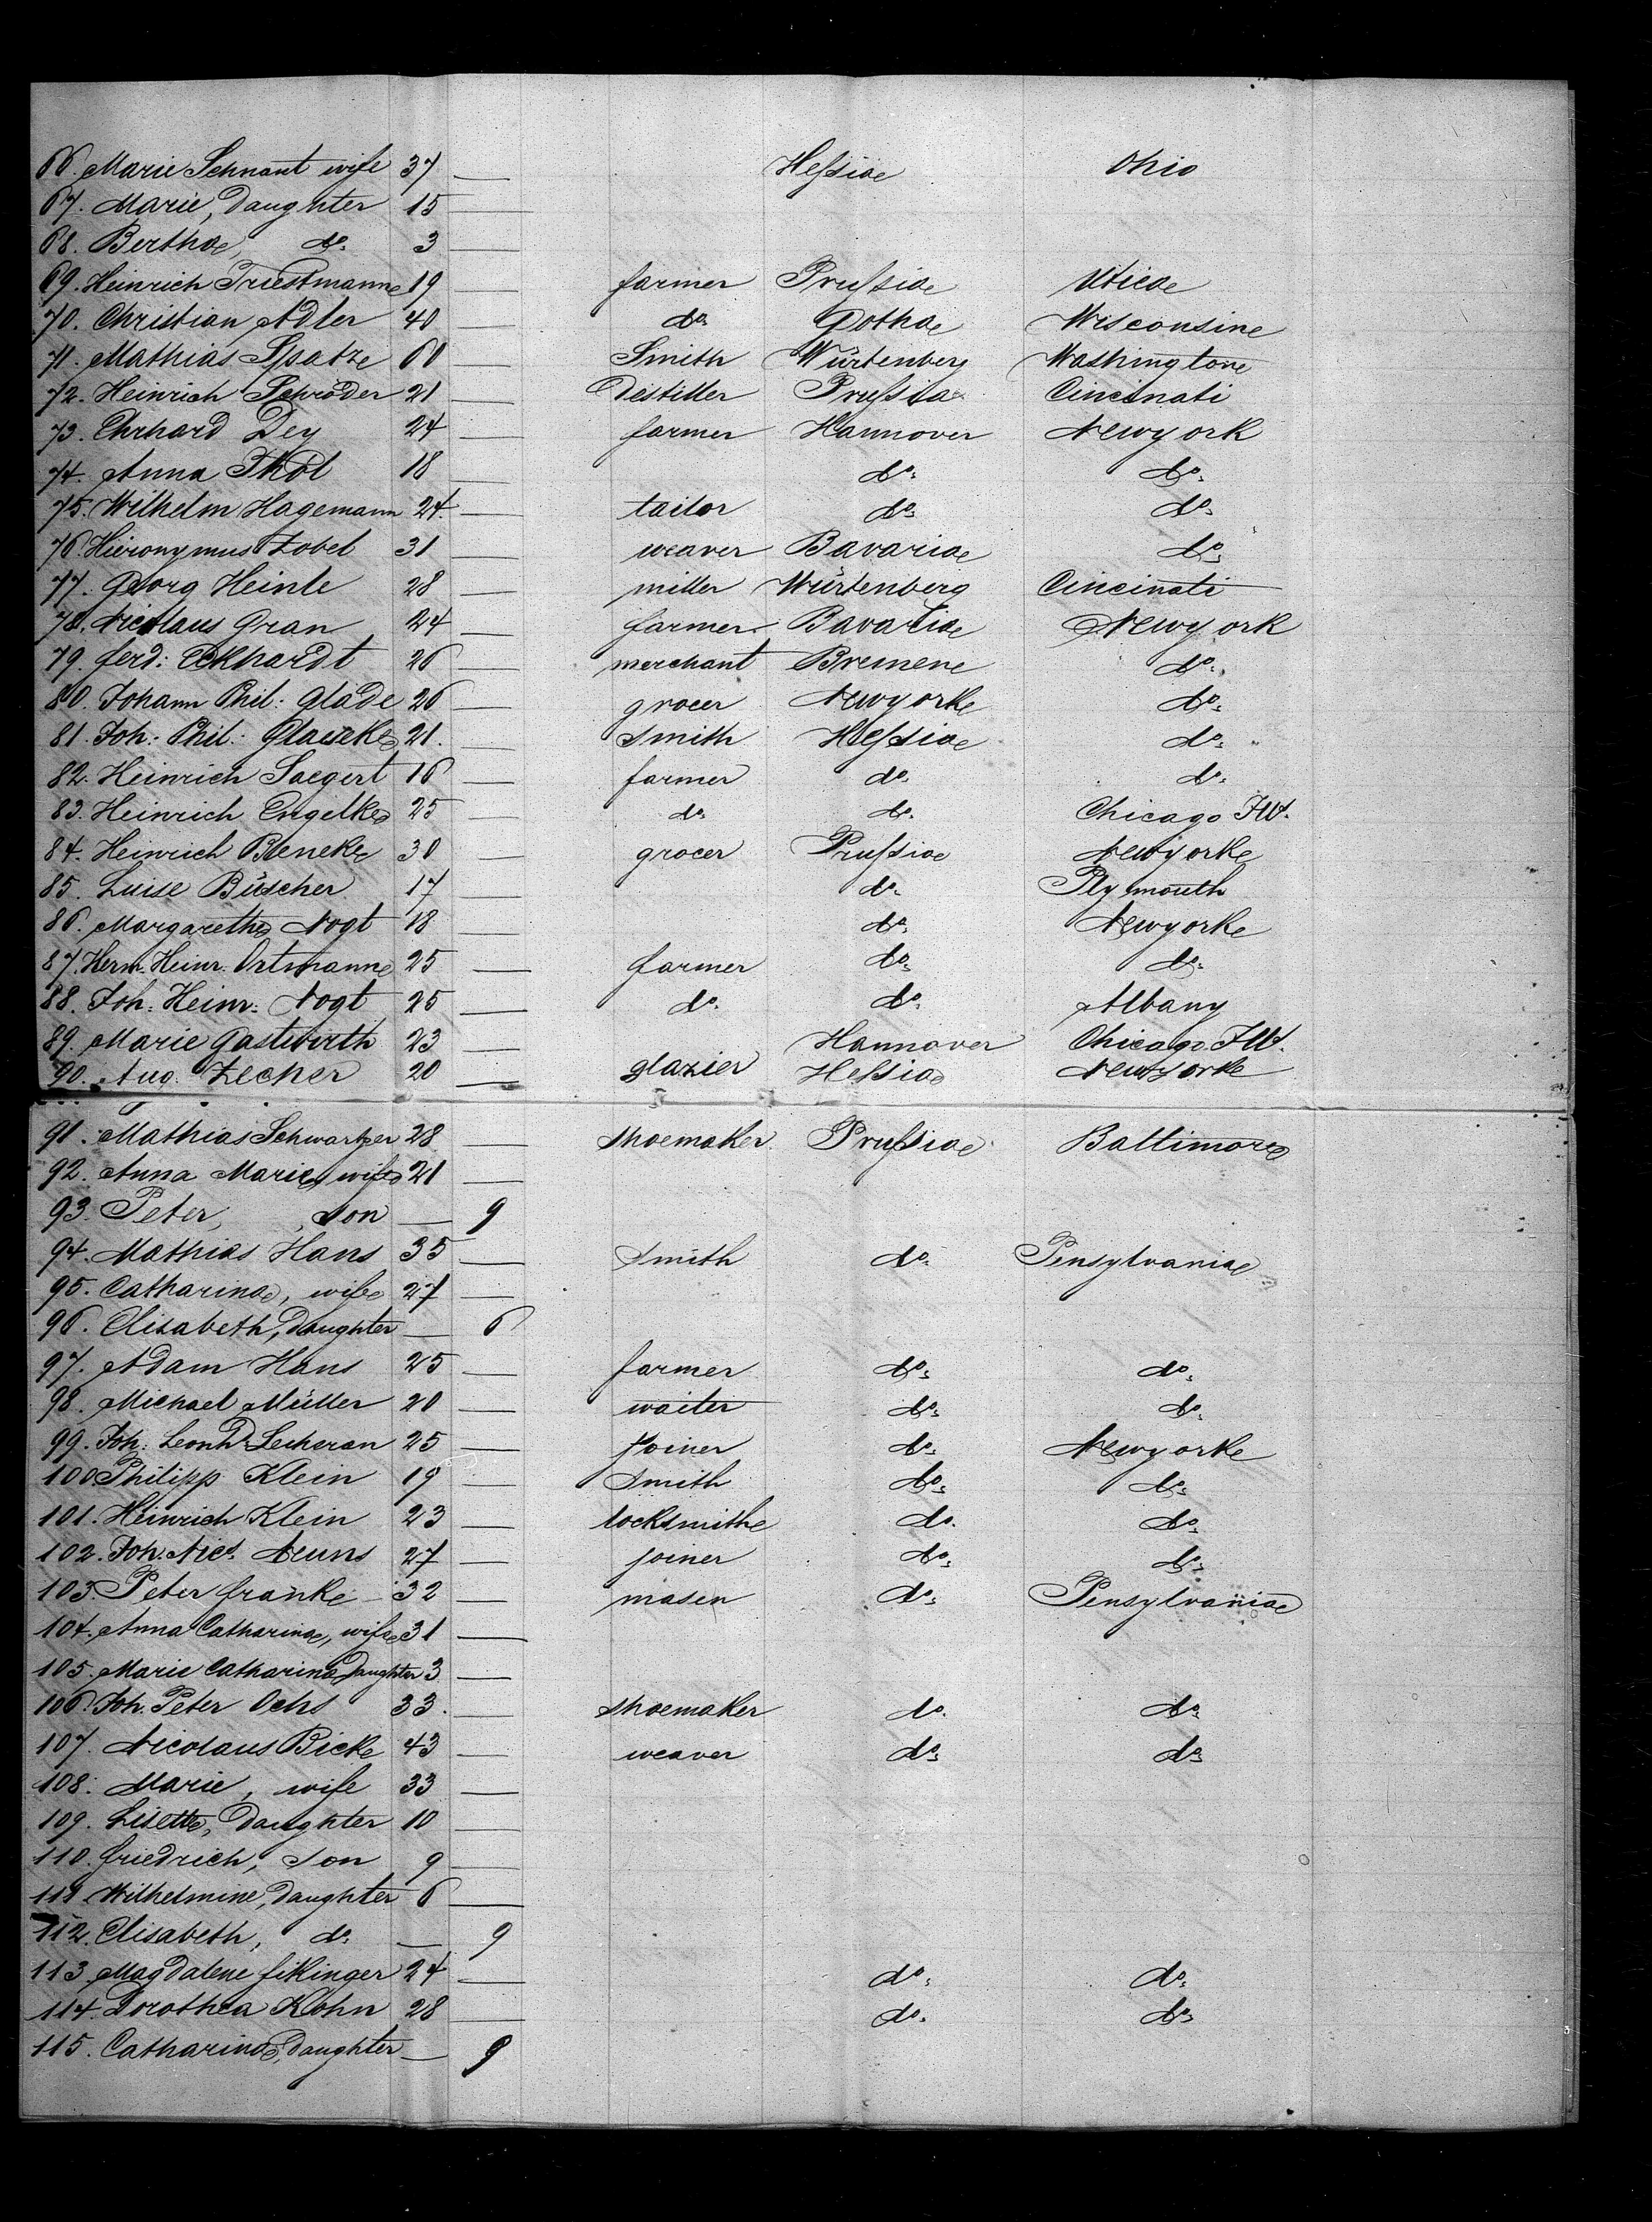 66. Marie Schnaut wife 37 — Hessia Ohio
67. Marie, Daughter 15 —
68. Bertha, do. 3 —
69. Heinrich Triestmann 19 — farmer Prussia Utica
70. Christian Adler 40 — do. Gotha Wisconsin
71. Mathias Spatz 60 — Smith Würtenberg Washington
72. Heinrich Schröder 21 — Destiller Prussia Cincinati
73. Ehrhard Dey 24 — farmer Hannover Newyork
74. Anna Thöl 18 — do. do.
75. Wilhelm Hagemann 24. — tailor do. do.
76. Hieronymus Zobel 31 — weaver Bavaria do.
77. Georg Heinle 28 — miller Würtenberg Cincinati
78. Nicolaus Gran 24 — farmer Bavaria Newyork
79. Ferd: Eckhardt 26 — merchant Bremen do.
80. Johann Phil: Glade 26 — grocer Newyork do.
81. Joh: Phil: 21. — Smith Hessia do.
82. Heinrich Saegert 16 — farmer do. do.
83. Heinrich Engelke 25 — do. do. Chicago Ill.
84. Heinrich Beneke 30 — grocer Prussia Newyork
85. Luise Büscher 17 — do. Plymouth
86. Margarethe Vogt 18 — do. Newyork
87. Herm. Heinr. Ortmann 25 — farmer do. do.
88. Joh: Heinr: Vogt 25 — do. do. Albany
89. Marie Gastwirth 23 — Hannover Chicago Ill.
90. Aug. Zecher 20 — glazier Hessia Newyork
91. Mathias Schwartzer 28 — shoemaker Prussia Baltimore
92. Anna Marie, wife 21 —
93. Peter, son — 9
94. Mathias Hans 35 — Smith do. Pensylvania
95. Catharina, wife 27 —
96. Elisabeth, Daughter — 6
97. Adam Hans 25 — farmer do. do.
98. Michael Müller 20 — waiter do. do.
99. Joh: Leonhd. Lecheran 25 — joiner do. Newyork
100. Philipp Klein 19 — Smith do. do.
101. Heinrich Klein 23 — locksmith do. do.
102. Joh. Nic. Neuns 27 — joiner do. do.
103. Peter Franke 32 — masen do. Pensylvania
104. Anna Catharina, wife 31 —
105. Marie Catharina Daughter 3 —
106. Joh. Peter Ochs 33. — shoemaker do. do.
107. Nicolaus Bicke 43 — weaver do. do.
108. Marie, wife 33 —
109. Lisette, Daughter 10 —
110. Friedrich, son 9 —
111. Wilhelmine, Daughter 6 —
112. Elisabeth, do. — 9
113. Magdalene Fikinger 24 — do. do.
114. Dorothea Kohn 28 — do. do.
115. Catharina, Daughter — 9